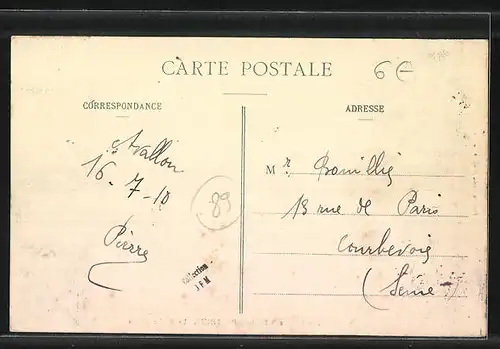 CARTE POSTALE
6€
CORRESPONDANCE
ADRESSE
Avallon
16-7-10
Pierre
89
Collection
JFM
Mr.
13 rue de Paris
Courbevoie
(Seine)